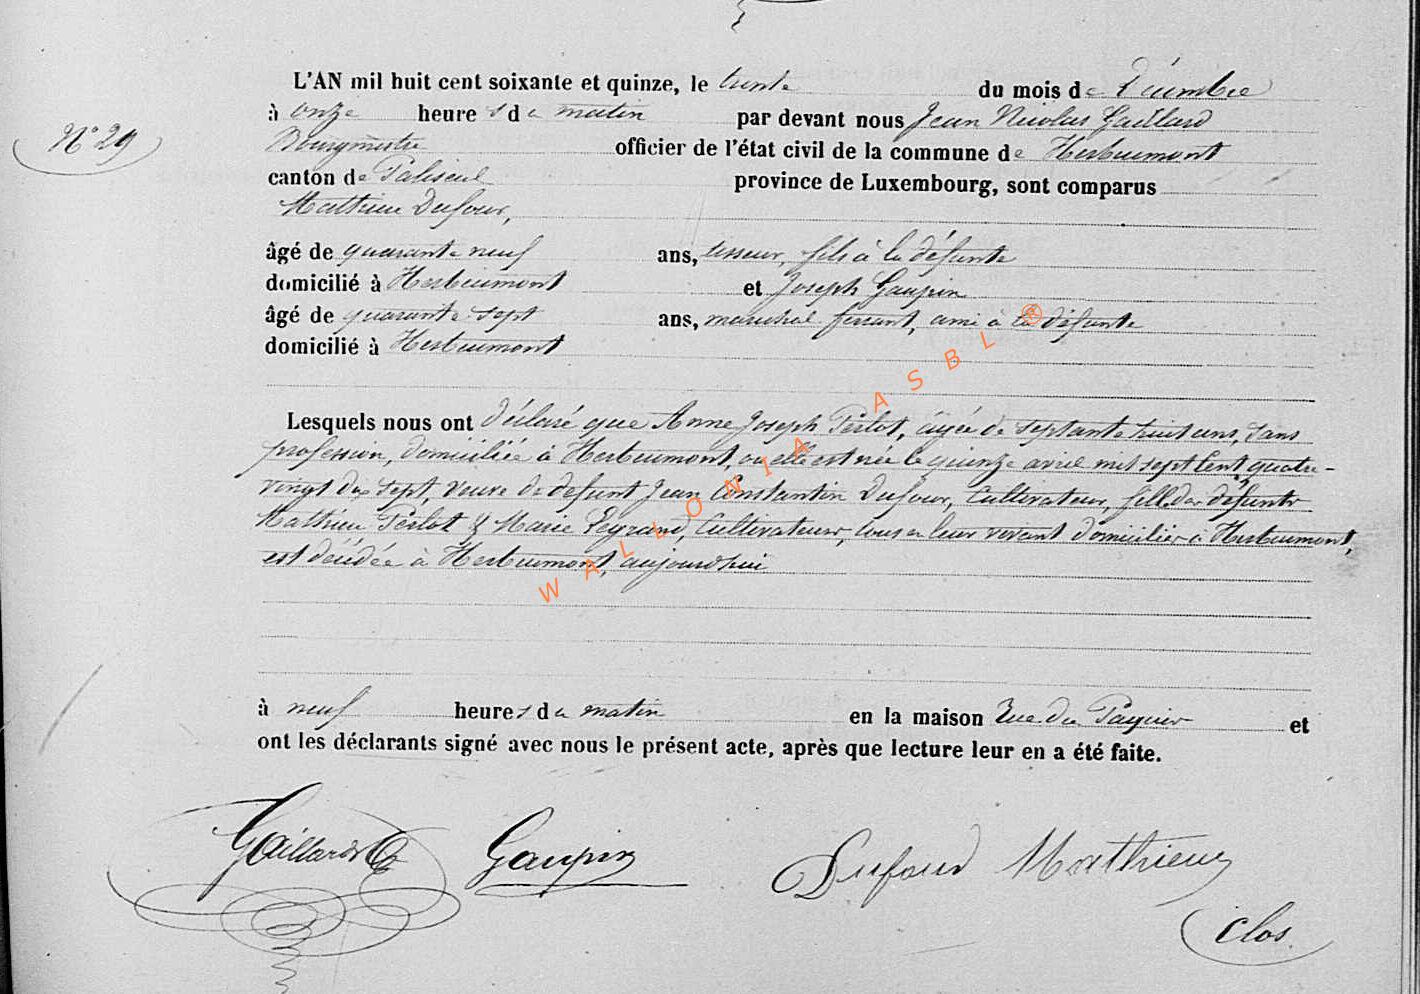 L'AN mil huit cent soixante et quinze, le trente du mois de Décembre
N° 29
à onze heures du matin par devant nous Jean Nicolas Gaillard
Bourgmestre officier de l'état civil de la commune de Herbeumont
canton de Paliseul province de Luxembourg, sont comparus
Mathieu Dufour,
âgé de quarante neuf ans, tisseur, fils à la défunte
domicilié à Herbeumont et Joseph Gaupin
âgé de quarante sept ans, maréchal ferrant, ami à la défunte
domicilié à Herbeumont
Lesquels nous ont déclaré que Anne Joseph Perlot, âgée de septante huit ans, sans
profession, domiciliée à Herbeumont, où elle est née le quinze avril mil sept cent quatre-
vingt dix sept, veuve de défunt Jean Constantin Dufour, Cultivateur, fille des défunts
Mathieu Perlot & Marie Legrand, Cultivateurs, tous en leur vivant domiciliés à Herbeumont,
est décédée à Herbeumont, aujourd'hui
à neuf heures du matin en la maison Rue du Paquier et
ont les déclarants signé avec nous le présent acte, après que lecture leur en a été faite.
Gaillard Gaupin Dufour Mathieu
Clos.
WALLONIA ASBL ®